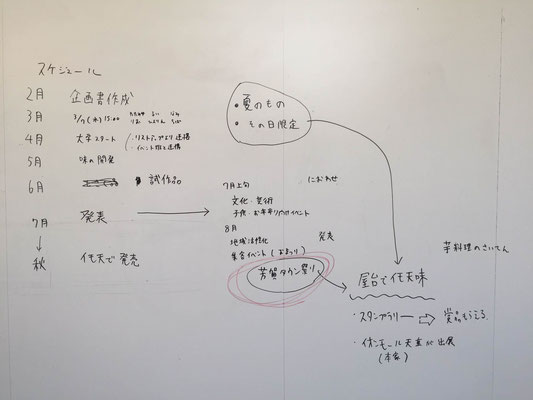 スケジュール
2月 企画書作成
3月 3/7(水) 15:00
4月 大学スタート ・リストアップより連携
・イベント性と連携
5月 味の開発
6月 試作品
7月 発表
秋 伝天で発売
・夏のもの
・その日限定
7月上旬 におわせ
文化・芸術
子供・お年寄り イベント
8月 発表
地域活性化
集合イベント(おまつり)
芳賀タウン祭り
芋料理のさいてん
屋台で 天味
・スタンプラリー ⇒ もらえる
・イオンモール天童が出展
(本家)